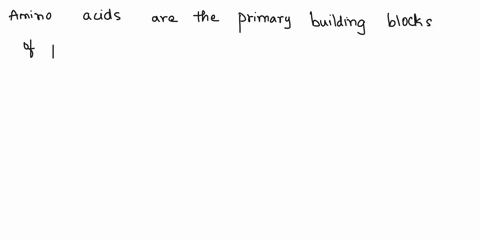 Amino acids are the primary building blocks
of